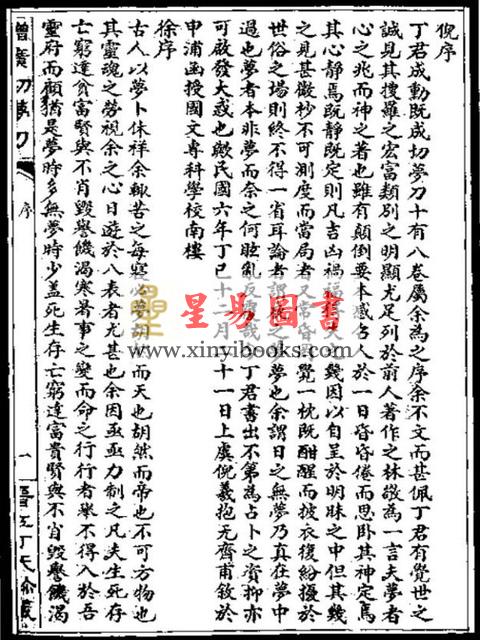 倪序
丁君成勳既成切夢刀十有八卷屬余為之序余不文而甚佩丁君有覺世之
誠見其搜羅之宏富類別之明顯尤足列於前人著作之林敬為一言夫夢者
心之兆而神之著也雖有顛倒要本感召人於一日昏昏倦而思卧其神定焉
其心靜焉既靜既定則凡吉凶禍福 幾因以自呈於明昧之中但其幾
之見甚微杪不可測度而當局者又常昏 覺一枕既酣醒而披衣復紛擾於
世俗之場則終不得一省耳論者謂 夢也余謂日之無夢乃真在夢中
過也夢者本非夢而奈之何眩亂 丁君書出不第為占卜之資抑亦
可啟發大惑也歟民國六年丁巳十二月 十一日上虞倪羲抱无齋甫敘於
申浦函授國文專科學校南樓
徐序
古人以夢卜休祥余輒苦之每寢必夢 而天也胡然而帝也不可方物也
其靈魂之勞視余之心日遊於八表者尤甚也余因亟亟力制之凡夫生死存
亡窮達貧富賢與不肖毀譽饑渴寒暑事之變而命之行行者舉不得入於吾
靈府而顧猶是夢時多無夢時少蓋死生存亡窮達富貴賢與不肖毀譽饑渴
增廣切夢刀
序
一
星易圖書
www.xinyibooks.com
www.xinyibooks.com